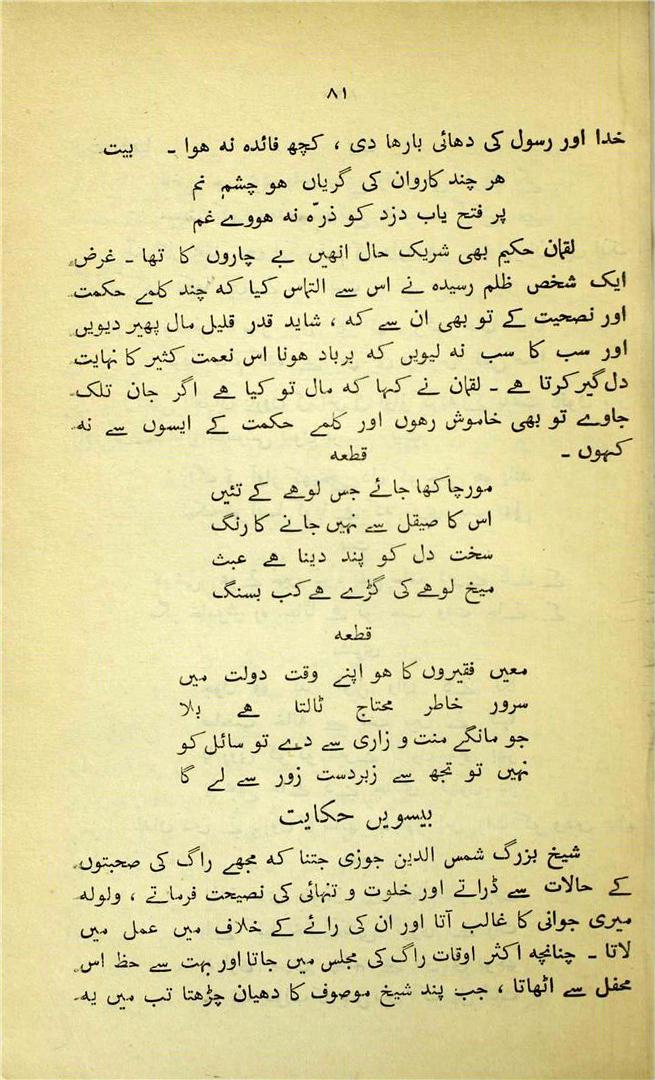 ۸۱
خدا اور رسول کی دھائی بارھا دی ، کچھ فائدہ نہ ھوا ـ بیت
ھر چند کاروان کی گریاں ھو چشمِ نم
پر فتح یاب دزد کو ذرّہ نہ ھووے غم
لقمان حکیم بھی شریک حال انھیں بے چاروں کا تھا ـ غرض
ایک شخص ظلم رسیدہ نے اس سے التماس کیا کہ چند کلمے حکمت
اور نصحیت کے تو بھی ان سے کہ ، شاید قدر قلیل مال پھیر دیویں
اور سب کا سب نہ لیویں کہ برباد ھونا اس نعمت کثیر کا نہایت
دل گیر کرتا ھے ـ لقمان نے کہا کہ مال تو کیا ھے اگر جان تلک
جاوے تو بھی خاموش رھوں اور کلمے حکمت کے ایسوں سے نہ
کہوں ـ
قطعہ
مورچا کھا جائے جس لوھے کے تئیں
اس کا صیقل سے نہیں جانے کا رنگ
سخت دل کو پند دینا ھے عبث
میخ لوھے کی گڑے ھے کب بسنگ
قطعہ
معیں فقیروں کا ھو اپنے وقت دولت میں
سرور خاطر محتاج ٹالتا ھے بلا
جو مانگے منت و زاری سے دے تو سائل کو
نہیں تو تجھ سے زبردست زور سے لے گا
بیسویں حکایت
شیخ بزرگ شمس الدین جوزی جتنا کہ مجھے راگ کی صحبتوں
کے حالات سے ڈراتے اور خلوت و تنہائی کی نصیحت فرماتے ، ولولہ
میری جوانی کا غالب آتا اور ان کی رائے کے خلاف میں عمل میں
لاتا ـ چنانچہ اکثر اوقات راگ کی مجلس میں جاتا اور بہت سے حظ اس
محفل سے اٹھاتا ، جب پند شیخ موصوف کا دھیان چڑھتا تب میں یہ